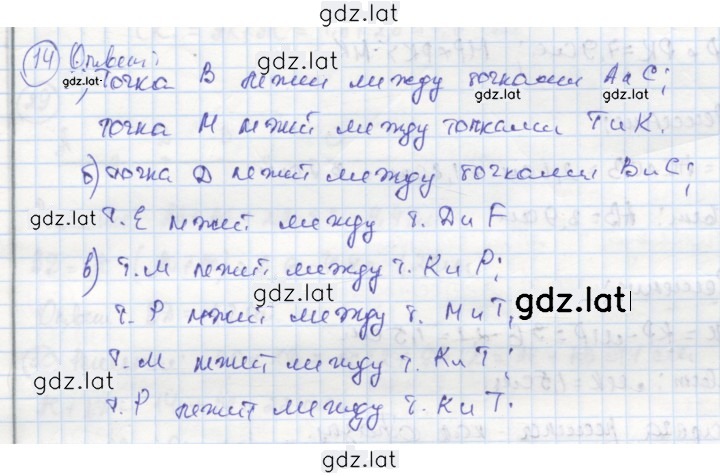 gdz.lat
14) Ответ:
gdz.lat
а) точка В лежит между точками А и С;
gdz.lat gdz.lat
точка М лежит между точками Т и К.
б) точка D лежит между точками В и С;
gdz.lat
т. Е лежит между т. D и F
в) т. М лежит между т. К и Р;
gdz.lat gdz.lat
т. Р лежит между т. М и Т;
т. М лежит между т. К и Т;
gdz.lat
т. Р лежит между т. К и Т.
gdz.lat